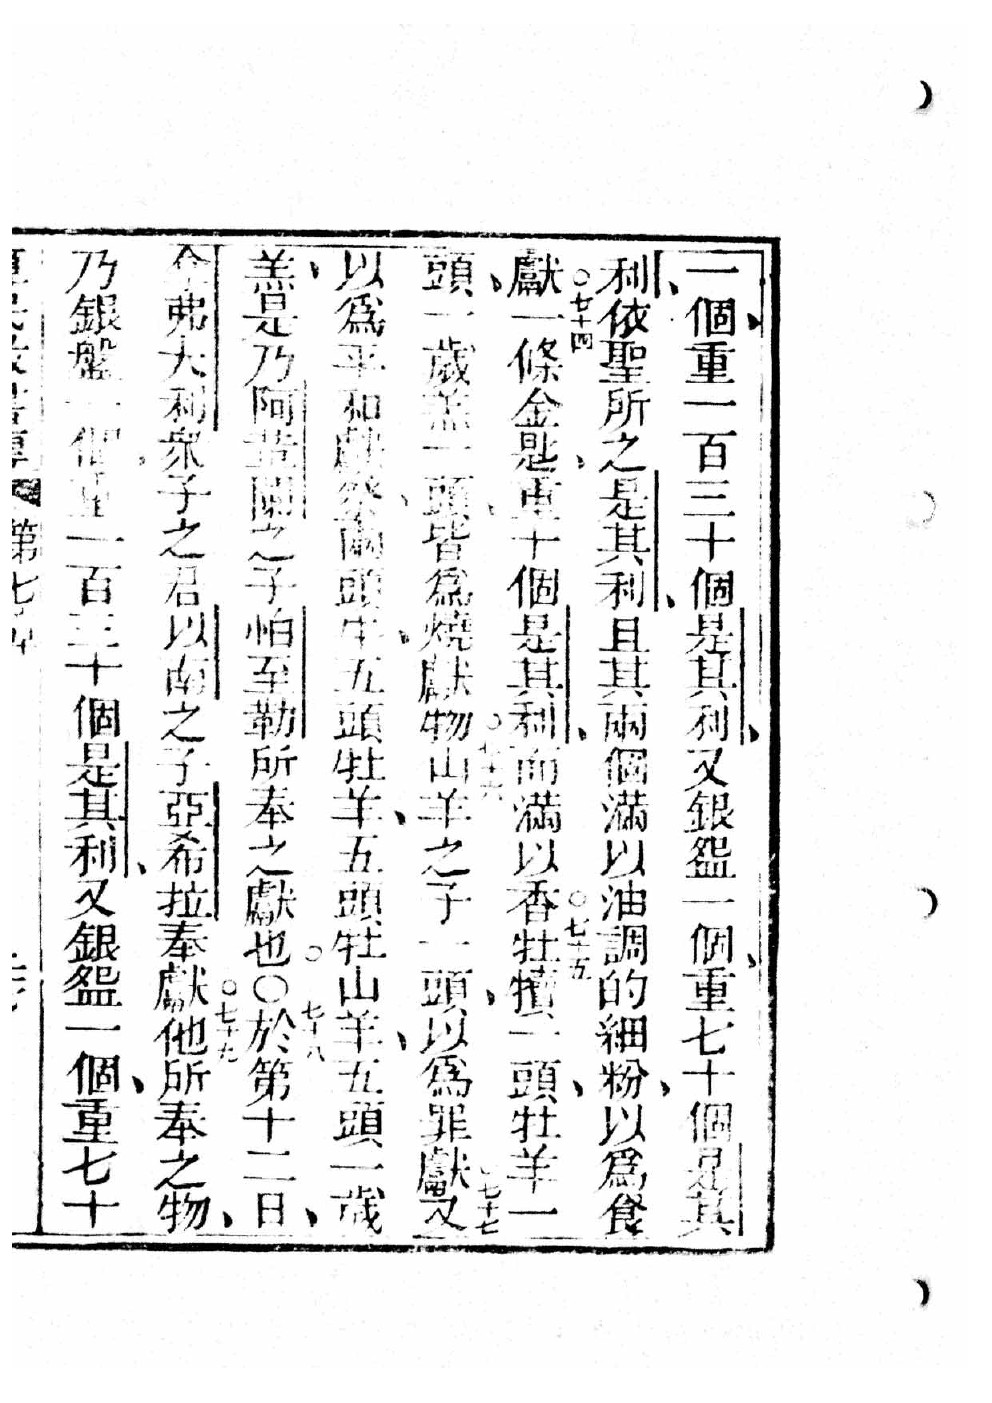 一個、重一百三十個是其利、又銀盌一個、重七十個是其
利、依聖所之是其利、且其兩個滿以油調的細粉、以爲食
獻、○七十四一條金匙、重十個是其利、而滿以香、○七十五牡犢一頭、牡羊一
頭、一歲羔一頭、皆爲燒獻物、○七十六山羊之子一頭、以爲罪獻、○七十七又
以爲平和獻祭、兩頭牛、五頭牡羊、五頭牡山羊、五頭一歲
羔、是乃阿之子怕至勒所奉之獻也○○七十八於第十二日、
弗大利衆子之君以南之子亞希拉○七十九奉獻他所奉之物、
乃銀盤一個、重一百三十個是其利、又銀盌一個、重七十
第七章